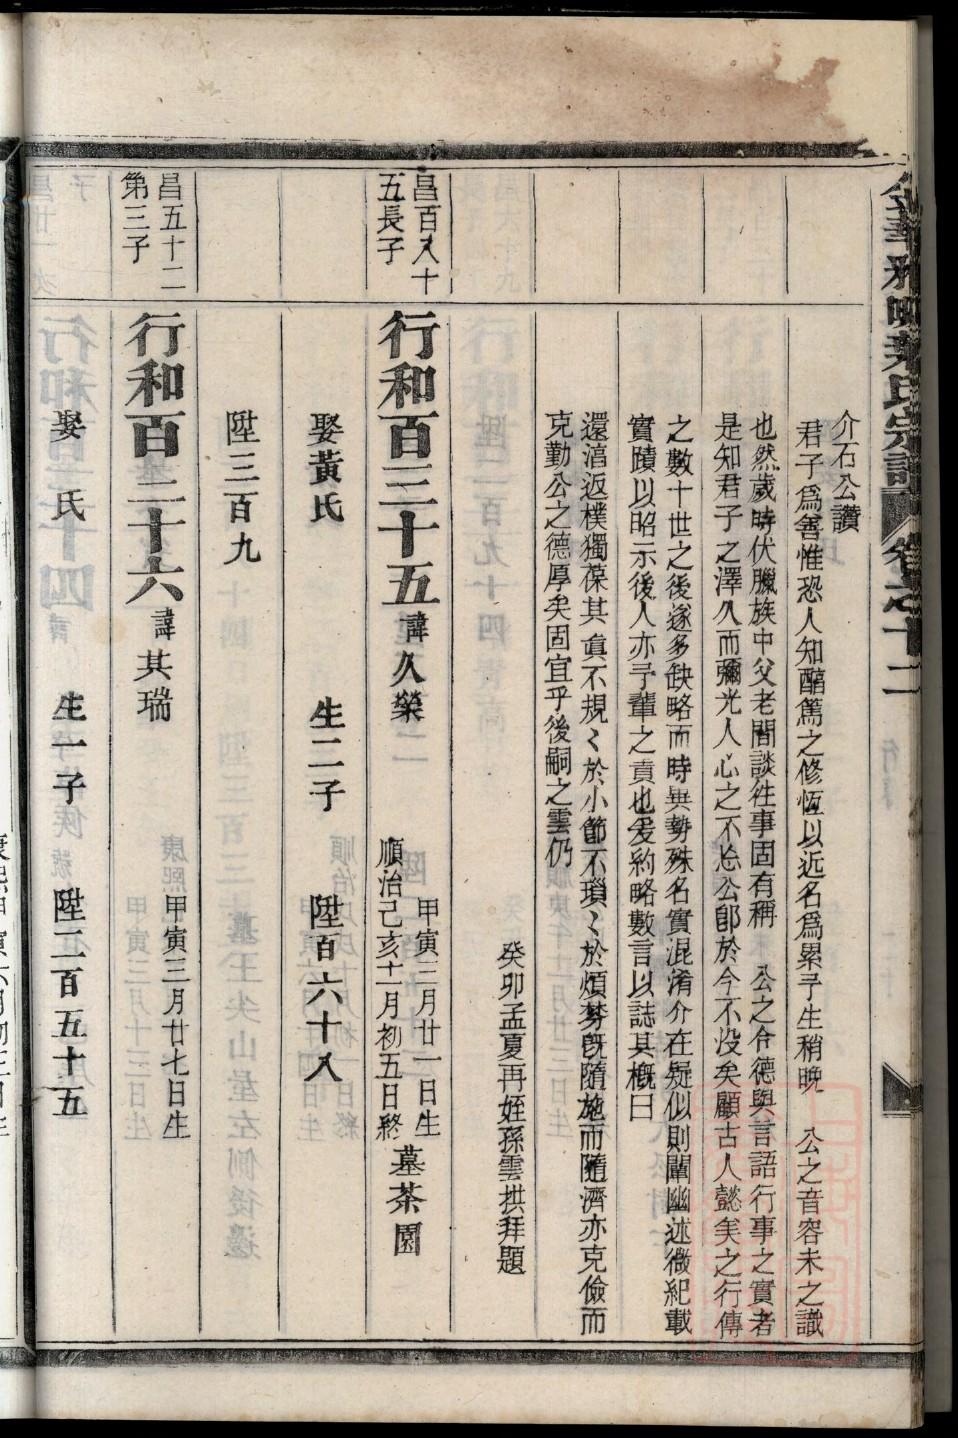 介石公讚
君子爲善惟恐人知醕篤之修恆以近名爲累予生稍晚　公之音容未之識
也然歲時伏臘族中父老閒談往事固有稱　公之合德與言語行事之實者
是知君子之澤久而彌光人心之不忘公卽於今不没矣顧古人懿矣之行傳
之數十世之後遂多缺略而時異勢殊名實混淆介在疑似則闡幽述微紀載
實蹟以昭示後人亦予輩之責也爰約略數言以誌其槪曰
還湻返樸獨葆其眞不規〻於小節不瑣〻於煩棼旣隨施而隨濟亦克儉而
克勤公之德厚矣固宜乎後嗣之雲仍
癸卯孟夏再姪孫雲拱拜題
昌百八十
五長子
行和百三十五
諱久榮
甲寅三月廿一日生
順治己亥十月初五日終
墓茶園
娶黃氏
生二子
陞百六十八
陞三百九
昌五十二
第三子
行和百三十六
諱其瑞
甲寅三月廿七日生
娶 氏
生一子
陞二百五十五